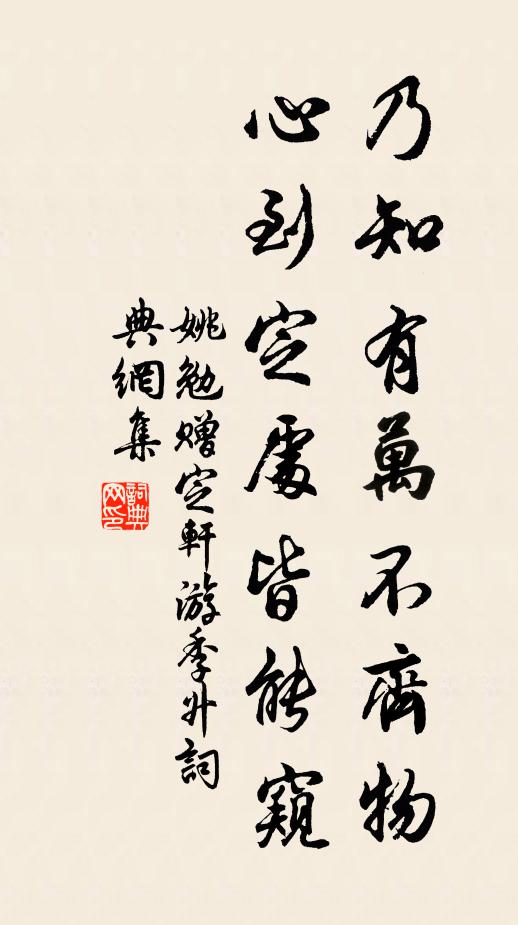 乃知有萬不齊物
心到定處皆能窺
姚勉贈定軒游季升詞
典網集
詞典网印